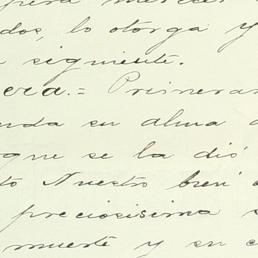 para merecer
dos, lo otorga y
siguiente.
era.= Primeram
nda su alma a
que se la dió
to Nuestro bien
preciosisima s
muerte y su